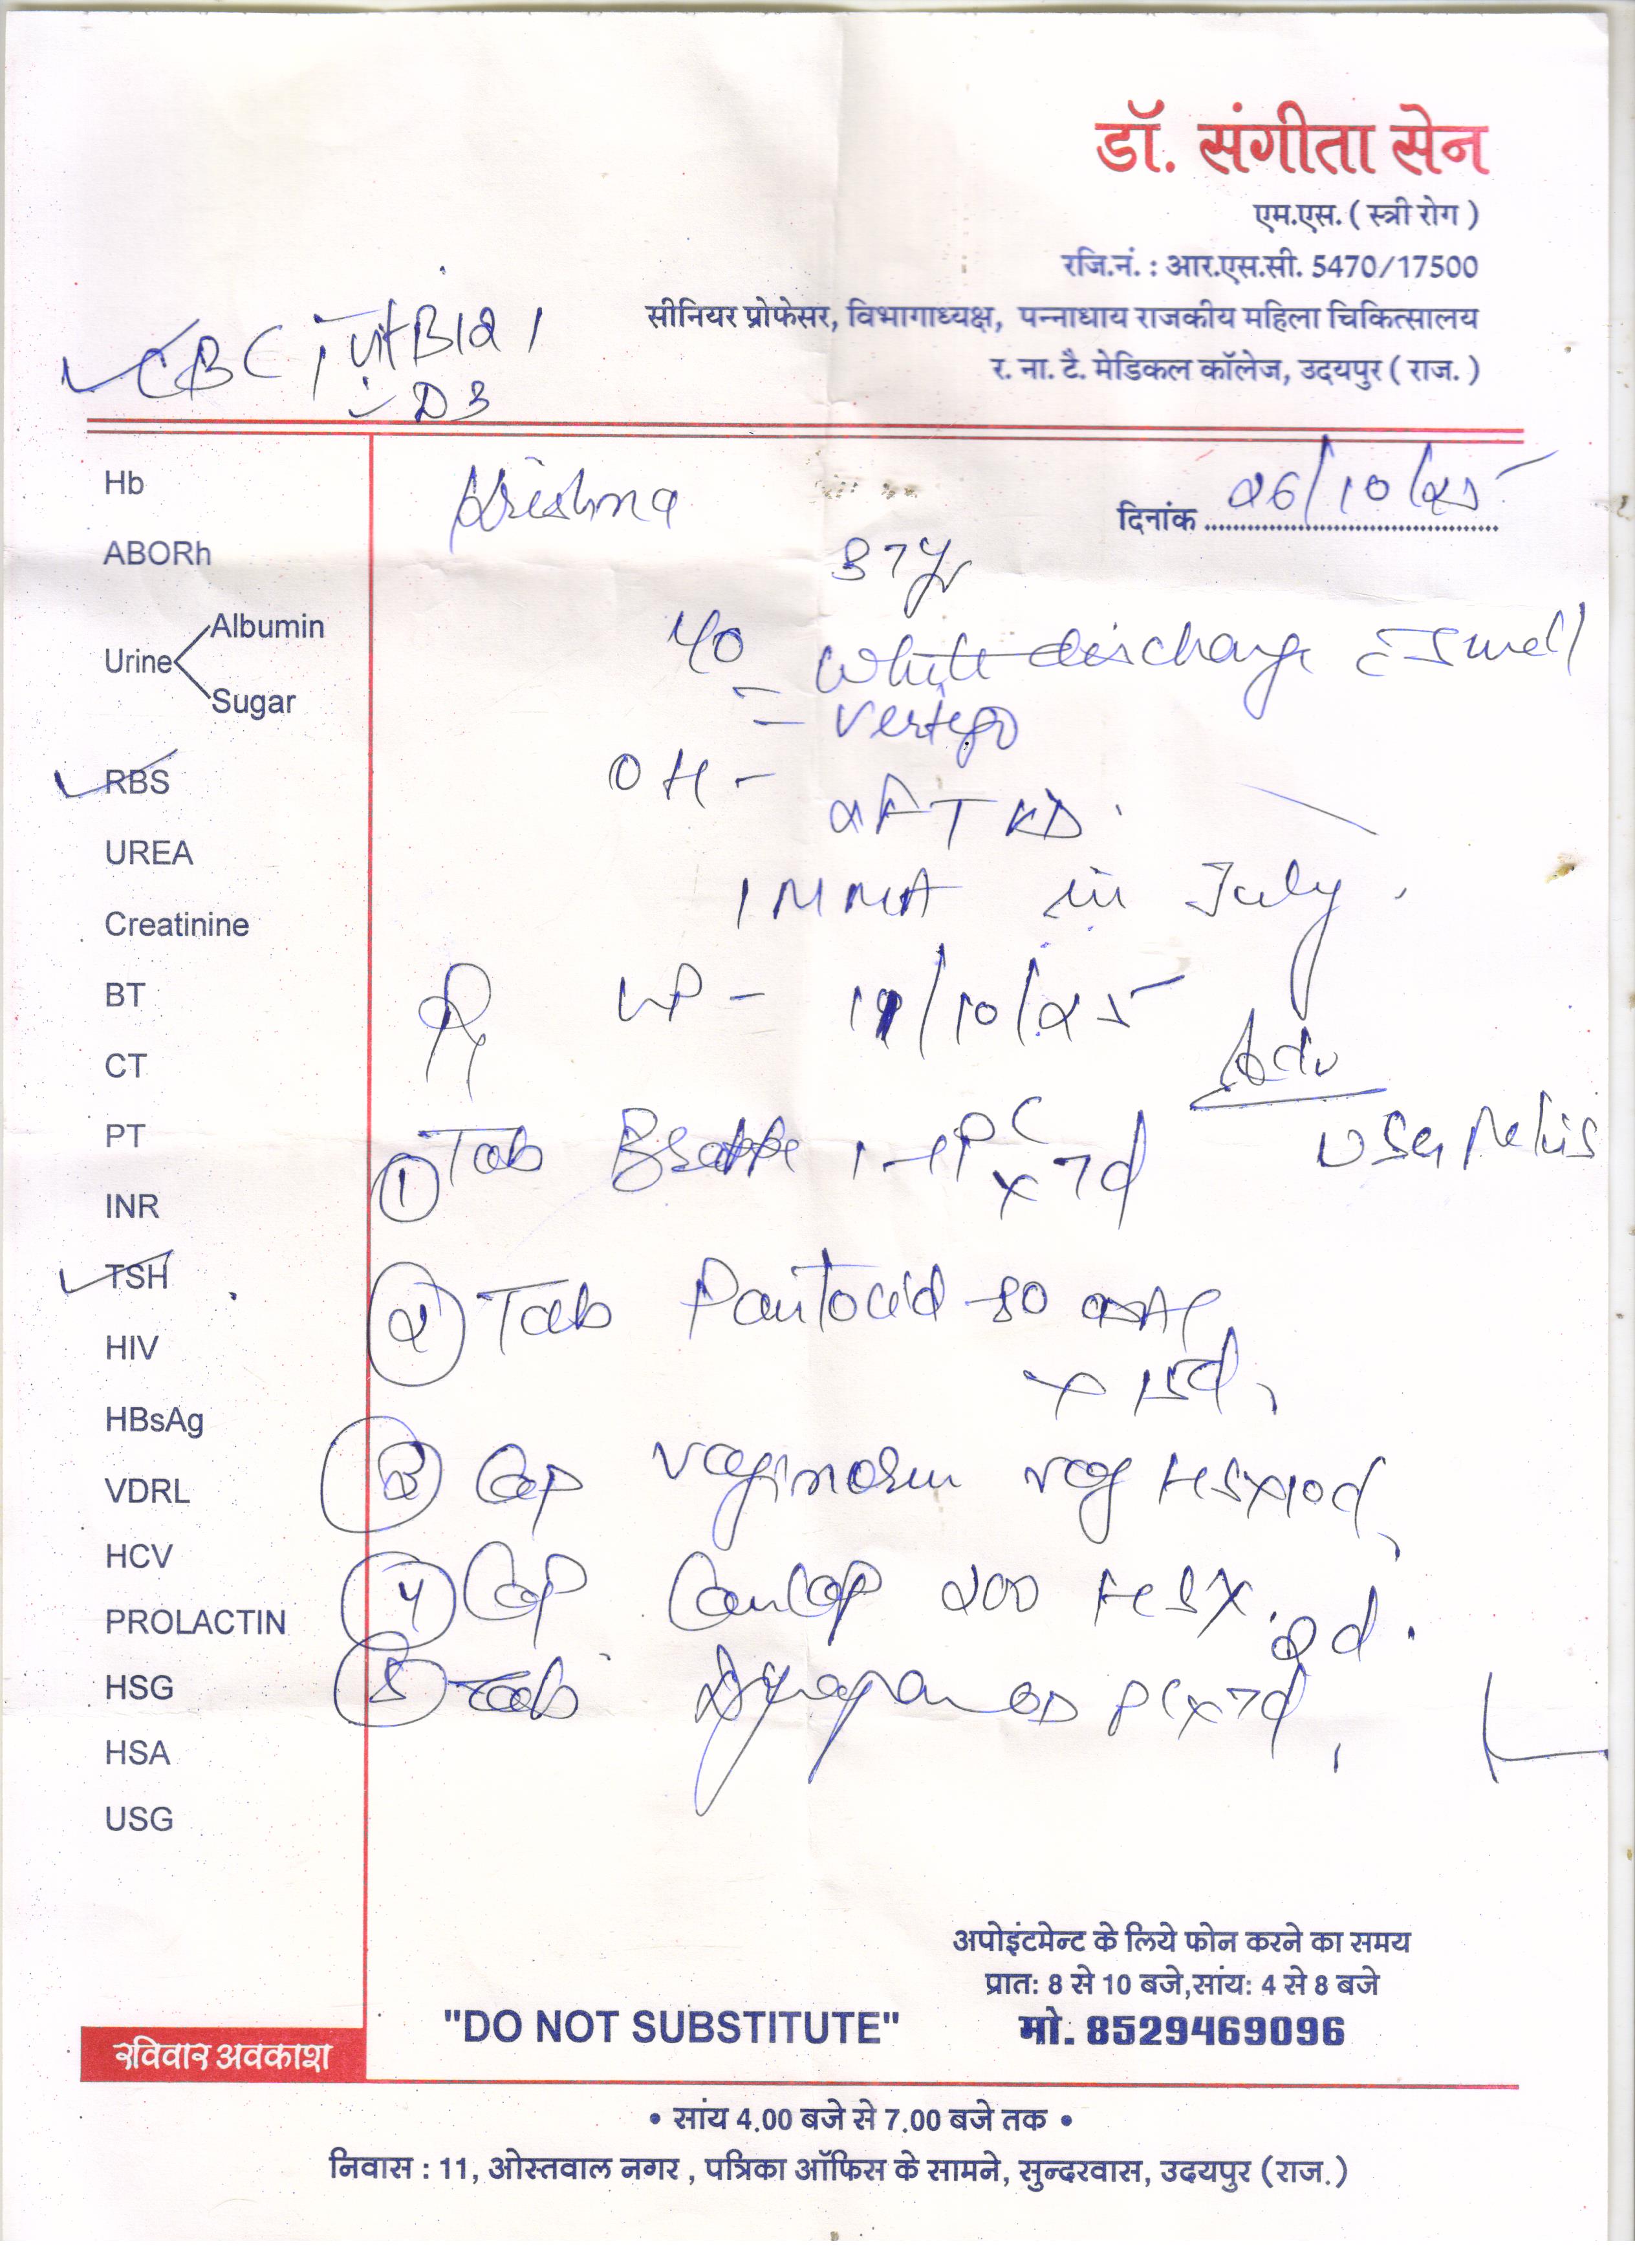 डॉ. संगीता सेन
एम.एस. ( स्त्री रोग )
रजि.नं. : आर.एस.सी. 5470/17500
सीनियर प्रोफेसर, विभागाध्यक्ष, पन्नाधाय राजकीय महिला चिकित्सालय
र. ना. टै. मेडिकल कॉलेज, उदयपुर ( राज. )
CBC, Vit B12,
D3
Krishna
दिनांक 26/10/25
37yr
Hb
ABORh
Urine
Albumin
Sugar
RBS
UREA
Creatinine
BT
CT
PT
INR
TSH
HIV
HBsAg
VDRL
HCV
PROLACTIN
HSG
HSA
USG
white discharge c Smell
- Vertigo
OH -
2FTND
1 MMA in July.
Rx LMP - /10/25
Adv
USG Pelvis
① Tab PC x 7d
② Tab Pantocid
x 15d,
③ Cap vaginorm vag HSx10d,
④ Cap Cancap 200 HS x 2d.
⑤ Tab PC x 7d,
अपोइंटमेन्ट के लिये फोन करने का समय
प्रातः 8 से 10 बजे,सांयः 4 से 8 बजे
"DO NOT SUBSTITUTE" मो. 8529469096
रविवार अवकाश
• सांय 4.00 बजे से 7.00 बजे तक •
निवास : 11, ओस्तवाल नगर , पत्रिका ऑफिस के सामने, सुन्दरवास, उदयपुर (राज.)